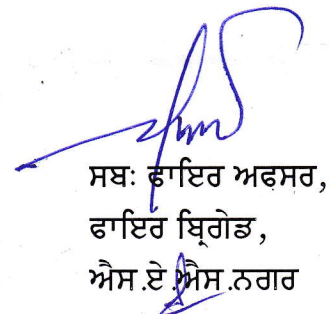 ਸਬਃ ਫਾਇਰ ਅਫਸਰ,
ਫਾਇਰ ਬ੍ਰਿਗੇਡ,
ਐਸ.ਏ.ਐਸ.ਨਗਰ